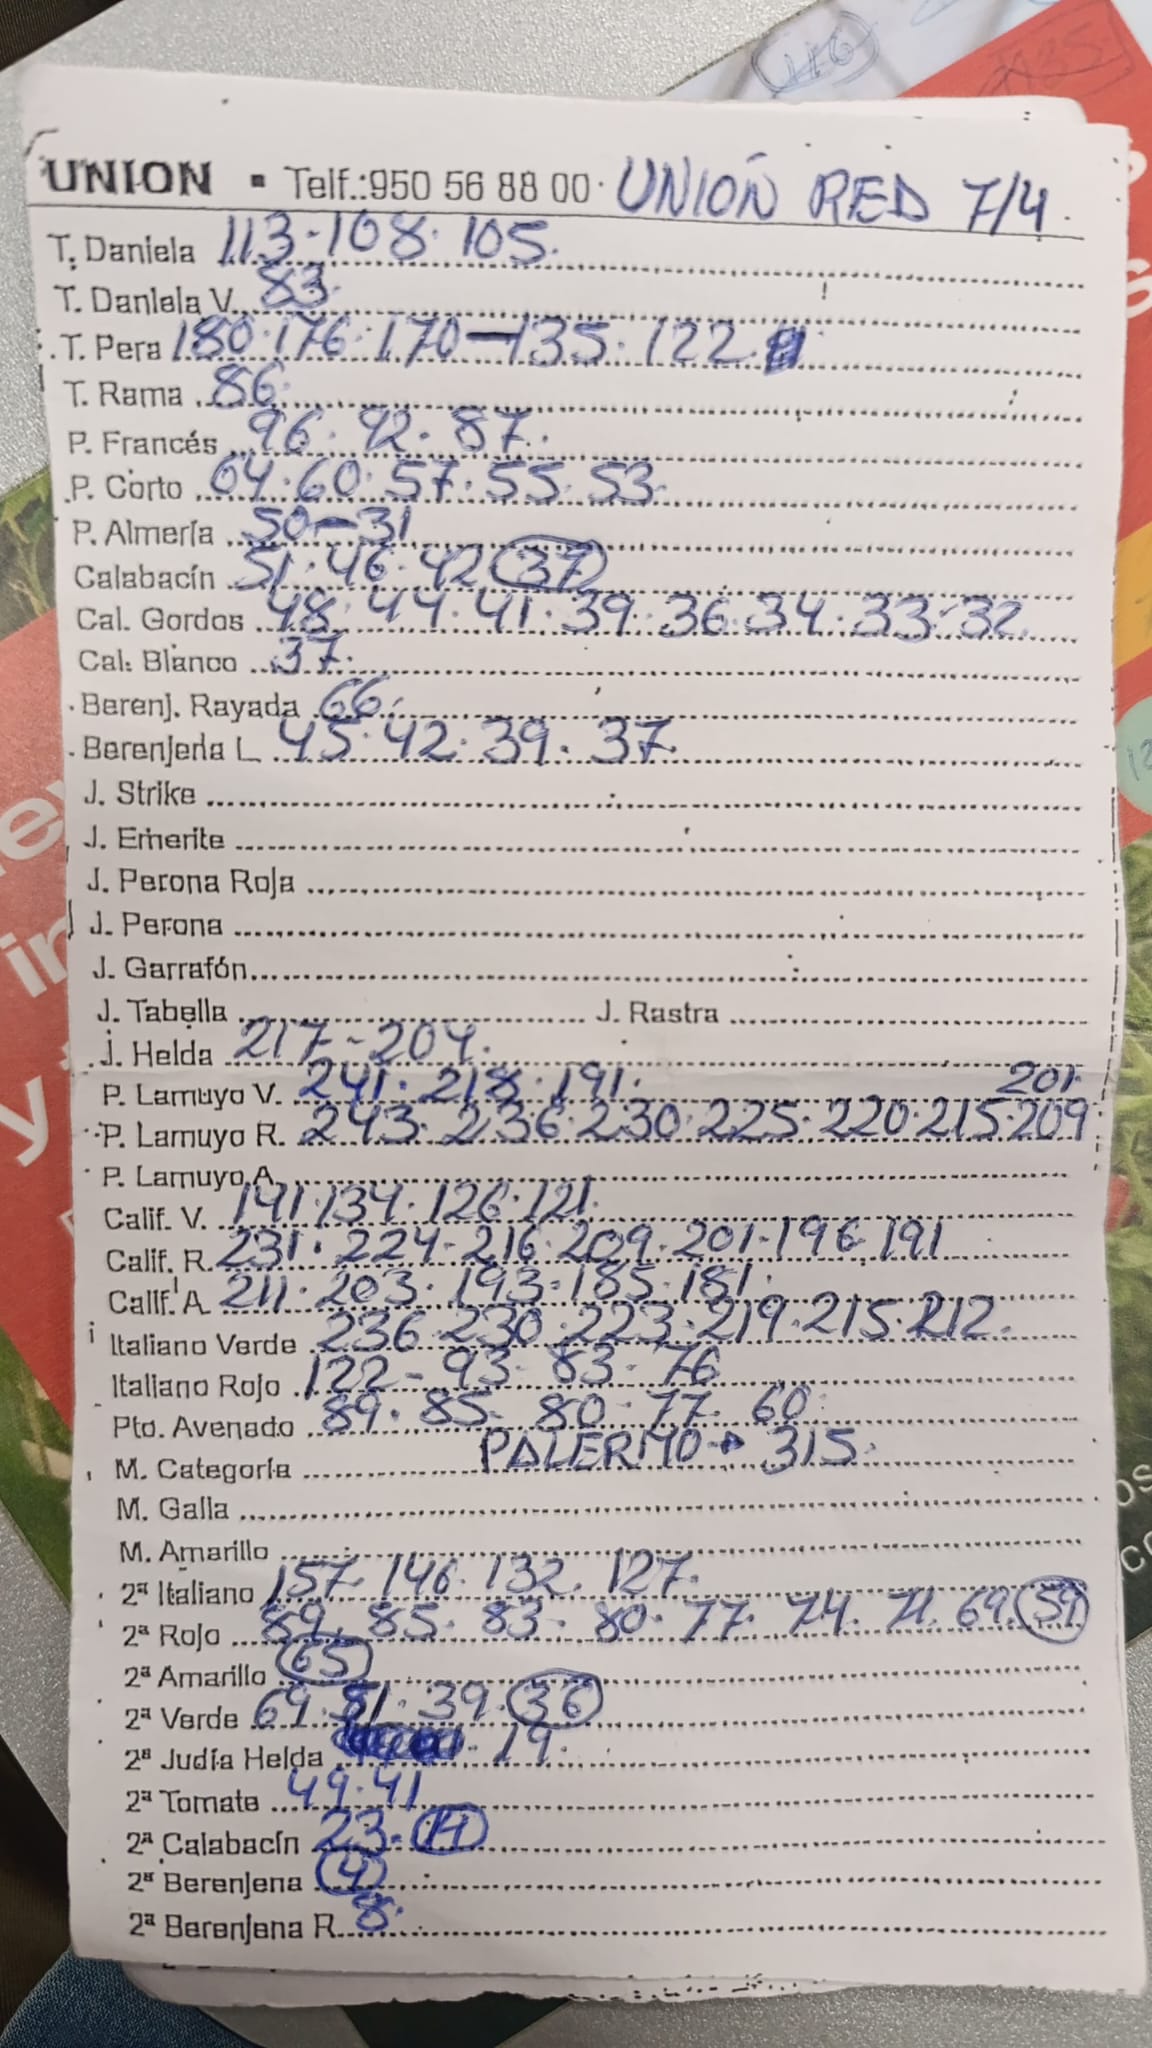 116
1135
UNION ▪ Telf.:950 56 88 00 · UNIÓN RED 7/4.
T. Daniela 113 · 108 · 105.
T. Daniela V. 83.
T. Pera 180 · 176 · 170 — 135 · 122.
T. Rama 86.
P. Francés 96 · 92 · 87.
P. Corto 64 · 60 · 57 · 55 · 53.
P. Almería 50 — 31
Calabacín 51 · 46 · 42 37
Cal. Gordos 48 · 44 · 41 · 39 · 36 · 34 · 33 · 32
Cal. Blanco 37.
Berenj. Rayada 66.
Berenjena L 45 · 42 · 39 · 37.
J. Strike
J. Emerite
J. Perona Roja
J. Perona
J. Garrafón
J. Tabella J. Rastra
J. Helda 217 - 204.
P. Lamuyo V. 241 · 218 · 191. 201.
P. Lamuyo R. 243 · 236 · 230 · 225 · 220 · 215 · 209
P. Lamuyo A.
Calif. V. 141 · 134 · 126 · 121.
Calif. R. 231 · 224 - 216 · 209 · 201 - 196 · 191
Calif. A 211 · 203 · 193 · 185 · 181.
Italiano Verde 236 · 230 · 223 · 219 · 215 · 212.
Italiano Rojo 122 - 93 · 83 · 76
Pto. Avenado 89 · 85 · 80 · 77 · 60.
M. Categoría PALERMO → 315.
M. Galla
M. Amarillo
2ª Italiano 157 · 146 · 132 · 127.
2ª Rojo 89 · 85 · 83 - 80 · 77 · 74 · 71 · 69 · 59
2ª Amarillo 65
2ª Verde 69 · 51 · 39 · 36
2ª Judía Helda 19.
2ª Tomate 49 · 41
2ª Calabacín 23 · 14
2ª Berenjena 4
2ª Berenjena R. 8.